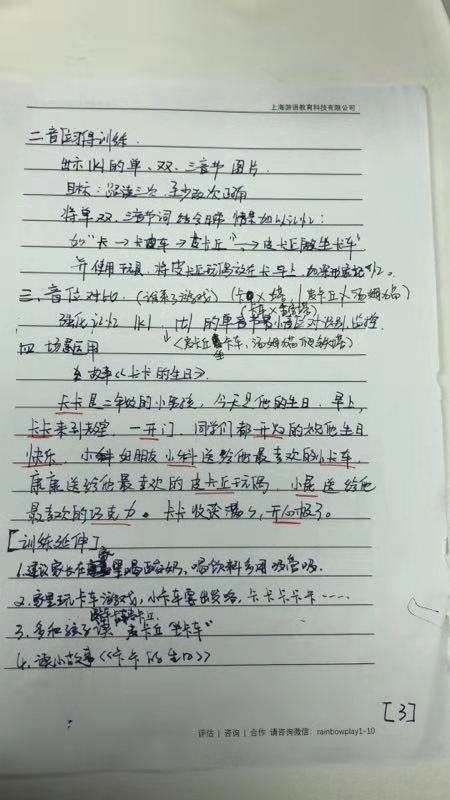 上海游语教育科技有限公司
二、音位习得训练.
出示|k|的单、双、三音节图片.
目标:跟读三次,至少两次正确
将单双、三音节词结合日常情景加以记忆:
如"卡→卡车→皮卡丘"→"皮卡丘坐卡车"
并使用玩具,将皮卡丘玩偶放在卡车上,加深形象记忆。
三、音位对比.(谁来了游戏)(卡 X 塔 / 皮卡丘 X 汤姆猫)
强化记忆|k|、|t|的单音节最小音位对识别、监控.
<皮卡丘坐卡车,汤姆猫爬铁塔>
四、场景运用
故事《卡卡的生日》.
卡卡是三年级的小男孩,今天是他的生日.早上,
卡卡来到教室,一开门,同学们都开心的祝他生日
快乐.小科送给他最喜欢的小卡车,
康康送给他最喜欢的皮卡丘玩偶,小昆送给他
最喜欢的巧克力。卡卡收获满满,开心极了。
[训练延伸].
1.建议家长在家里喝酸奶,喝饮料多用吸管吸.
2.家里玩卡车游戏,小卡车要出发咯,卡卡卡卡卡……
3.多和孩子读"皮卡丘坐卡车"
4.读小故事《卡卡的生日》
[3]
评估 | 咨询 | 合作 请咨询微信:rainbowplay1-10